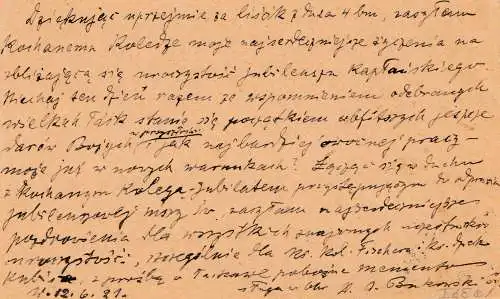 Dziękując uprzejmie za liścik z dnia 4 bm, zasyłam
Kochanemu Koledze moje najserdeczniejsze życzenia na
zbliżającą się uroczystość jubileusza Kapłańskiego.
Niechaj ten dzień razem ze wspomnieniem odebranych
wielkich łask stanie się początkiem obfitszych jeszcze
w przyszłości
darów Bożych i jak najbardziej owocnej pracy
może już w nowych warunkach! Łącząc się w duchu
z Kochanym Kolegą-Jubilatem przystępującym do
jubileuszowej mszy św. zasyłam najserdeczniejsze
pozdrowienia dla wszystkich znajomych uczestników
uroczystości, szczególnie dla Ks. Kol. Fischera, ks.
z prośbą o łaskawe pobożne memento
12.6.31.